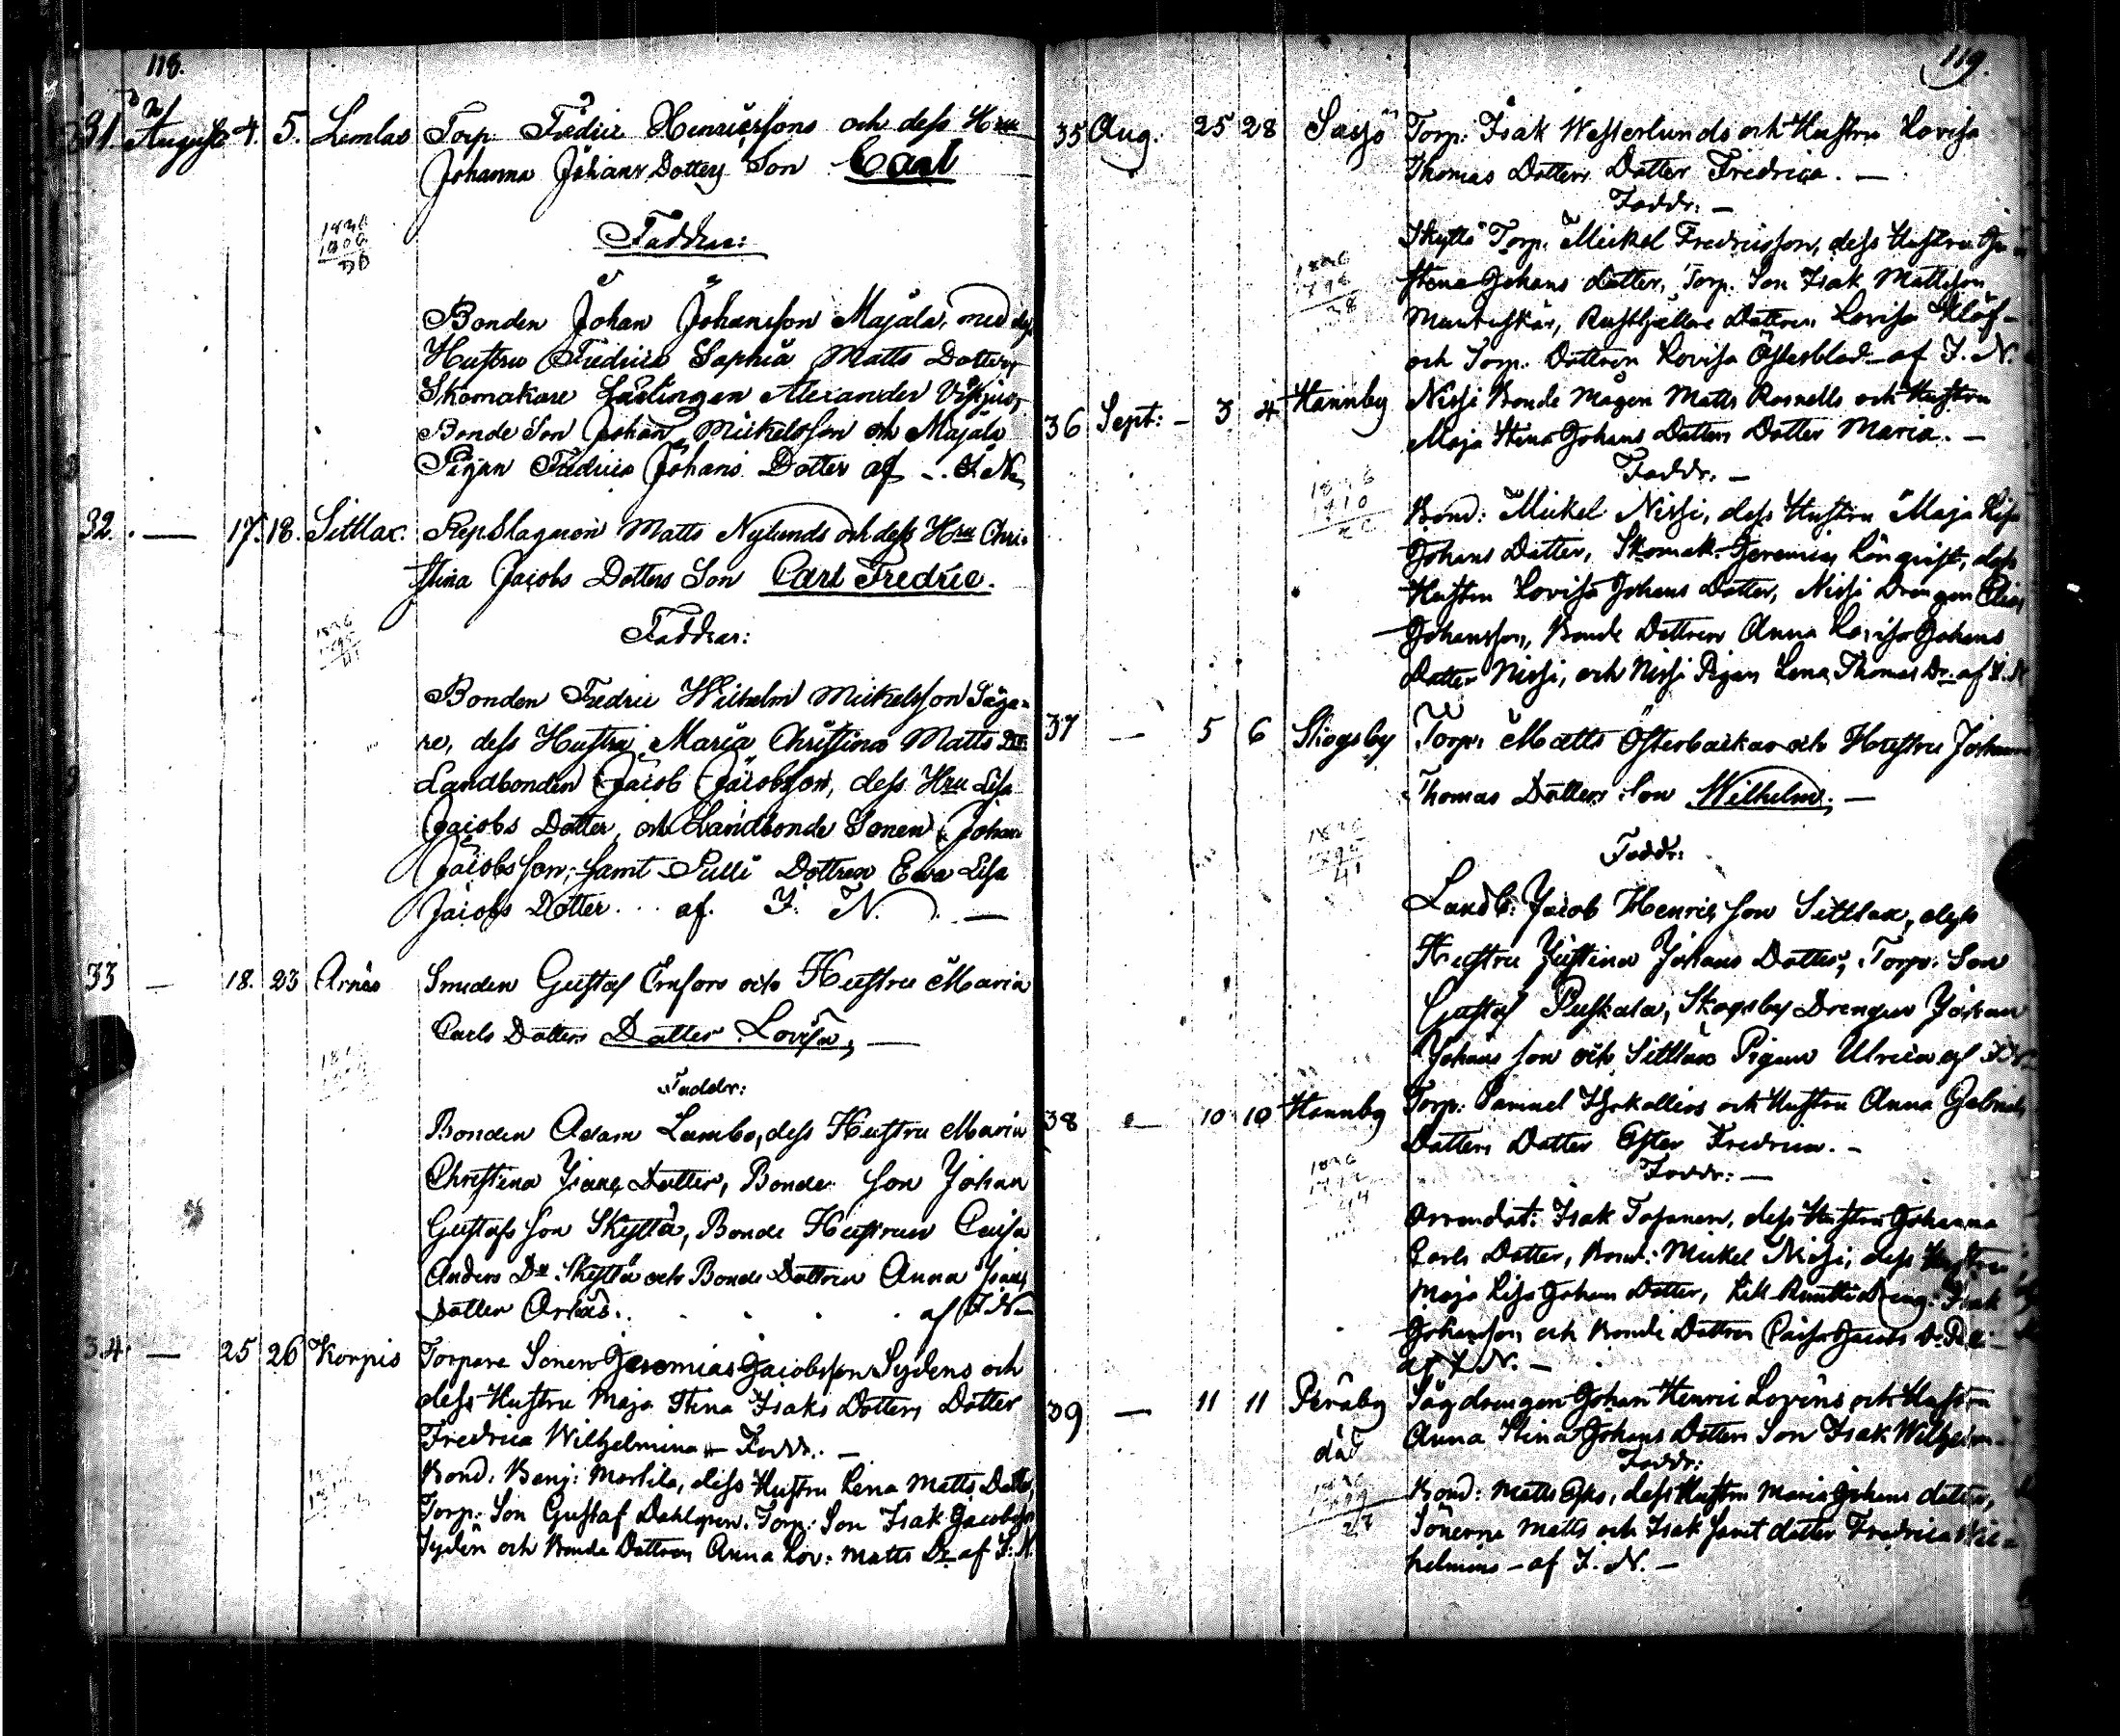 118.
31. Augusti 4. 5. Lemlax Torp. Fredric Henricssons och dess Hru
Johanna Johans Dotters Son Carl
1836
1806
30
Faddrar:
Bonden Johan Johansson Majala, med dess
Hustru Fredrica Sophia Matts Dotter,
Skomakare Lärlingen Alexander
Bonde Son Johan Mickelsson och Majala
Pigan Fredrica Johans Dotter af - I. N.
32. — 17. 18. Sittlax. Matts Nylunds och dess Hru Chri-
stina Jacobs Dotters Son Carl Fredric.
1836
1795
41
Faddrar:
Bonden Fredric Wilhelm Mickelsson Säga-
re, dess Hustru Maria Christina Matts Dr
Landbonden Jacob Jacobsson, dess Hru Lisa
Jacobs Dotter, och Landbonde Sonen Johan
Jacobsson, samt Dottren Ewa Lisa
Jacobs Dotter ... af. I. N. —
33 — 18. 23 Arnäs Smeden Gustaf Ernfors och Hustru Maria
Carls Dotters Dotter Lovisa, —
Faddr:
Bonden Adam Lambo, dess Hustru Maria
Christina Isaacs Dotter, Bonde Son Johan
Gustafs son Skyttä, Bonde Hustrun Caisa
Anders Dr Skyttä och Bonde Dottren Anna Isaacs
Dotter Arnäs. . . . af I. N.
34 — 25 26 Korpis Torpare Sonen Jeremias Jacobsson Sydens och
dess Hustru Maja Stina Isaks Dotters Dotter
Fredrica Wilhelmina — Faddr. —
Bond. Benj: Markila, dess Hustru Lena Matts Dotter,
Torp. Son Gustaf Dahlgren, Torp: Son Isak Jacobsson
Sydén och Bonde Dottren Anna Lov: Matts Dr af I. N.
119.
35 Aug. 25 28 Sarsö Torp. Isak Westerlunds och Hustru Lovisa
Thomas Dotters Dotter Fredrica. —
Faddr. —
Skyttä Torp. Mickel Fredricsson, dess Hustru
Stena Johans Dotter, Torp. Son Isak Mattsson
Rusthållare Dottren Lovisa Klöf-
och Torp. Dottren Lovisa Österblad — af I. N.
1836
1798
38
36 Sept: - 3 4 Hannby Nissi Bonde Mågen Matts Rosnells och Hustru
Maja Stina Johans Dotters Dotter Maria. —
Faddr. —
Bond: Mickel Nissi, dess Hustru Maja Lisa
Johans Dotter, Skomak. Jeremias Lönqvist, dess
Hustru Lovisa Johans Dotter, Nissi Drengen Elias
Johansson, Bonde Dottren Anna Lovisa Johans
Dotter Nissi, och Nissi Pigan Lena Thomas Dr af I. N
37 — 5 6 Skogsby Torp. Matts Österbackas och Hustru Johanna
Thomas Dotters Son Wilhelm. —
1836
1795
41
Faddr:
Landb: Jacob Henrics son Sittlax, dess
Hustru Justina Johans Dotter, Torp. Son
Gustaf Puskala, Skogsby Drengen Johan
Johans son och Sittlax Pigan Ulrica af I. N.
38 — 10 10 Hannby Torp. Samuel Isokallios och Hustru Anna Gabriels
Dotters Dotter Ester Fredrica. —
Faddr: —
1836
1792
44
Arrendat: Isak Tossanen, dess Hustru Johanna
Carls Dotter, Bond: Mickel Nissi, dess Hustru
Maja Lisa Johans Dotter, Dreng: Isak
Johansson och Bonde Dottren Caisa Jacobs Dr
af I. N. —
39 — 11 11 Peräby Sågdrengen Johan Henric Lovéns och Hustru
Anna Stina Johans Dotters Son Isak Wilhelm —
Faddr:
Bond: Matts Esko, dess Hustru Maria Johans dotter,
Sönerne Matts och Isak samt dotter Fredrica Wil-
helmina — af I. N. —